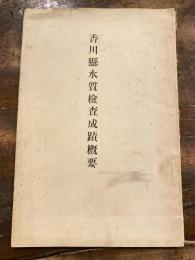 香川縣水質檢查成蹟概要